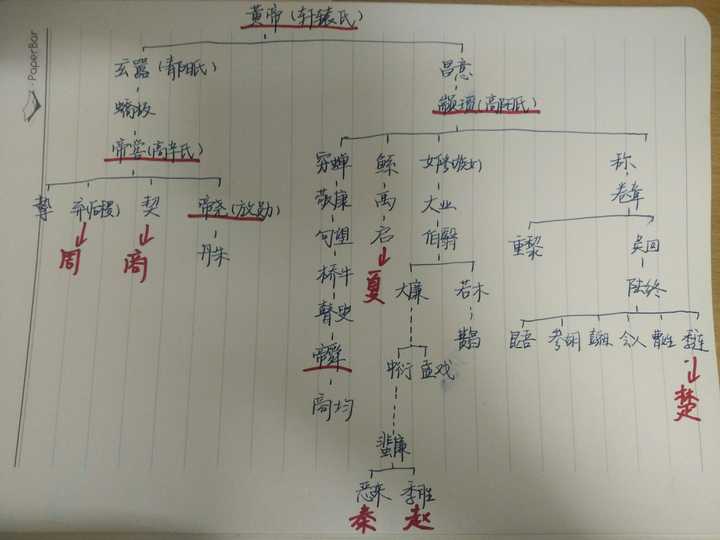 PaperBar
黄帝（轩辕氏）
玄嚣（青阳氏） 昌意
蟜极 颛顼（高阳氏）
帝喾（高辛氏） 穷蝉 鲧 女修 称
挚 弃（后稷） 契 帝尧（放勋） 敬康 禹 大业 卷章
周 商 丹朱 句望 启 伯翳 重黎 吴回
桥牛 夏 大廉 若木 陆终
瞽叟 昆吾 参胡 彭祖 会人 曹姓 季连
帝舜 中衍 孟戏 楚
商均
蜚廉
恶来 季胜
秦 赵